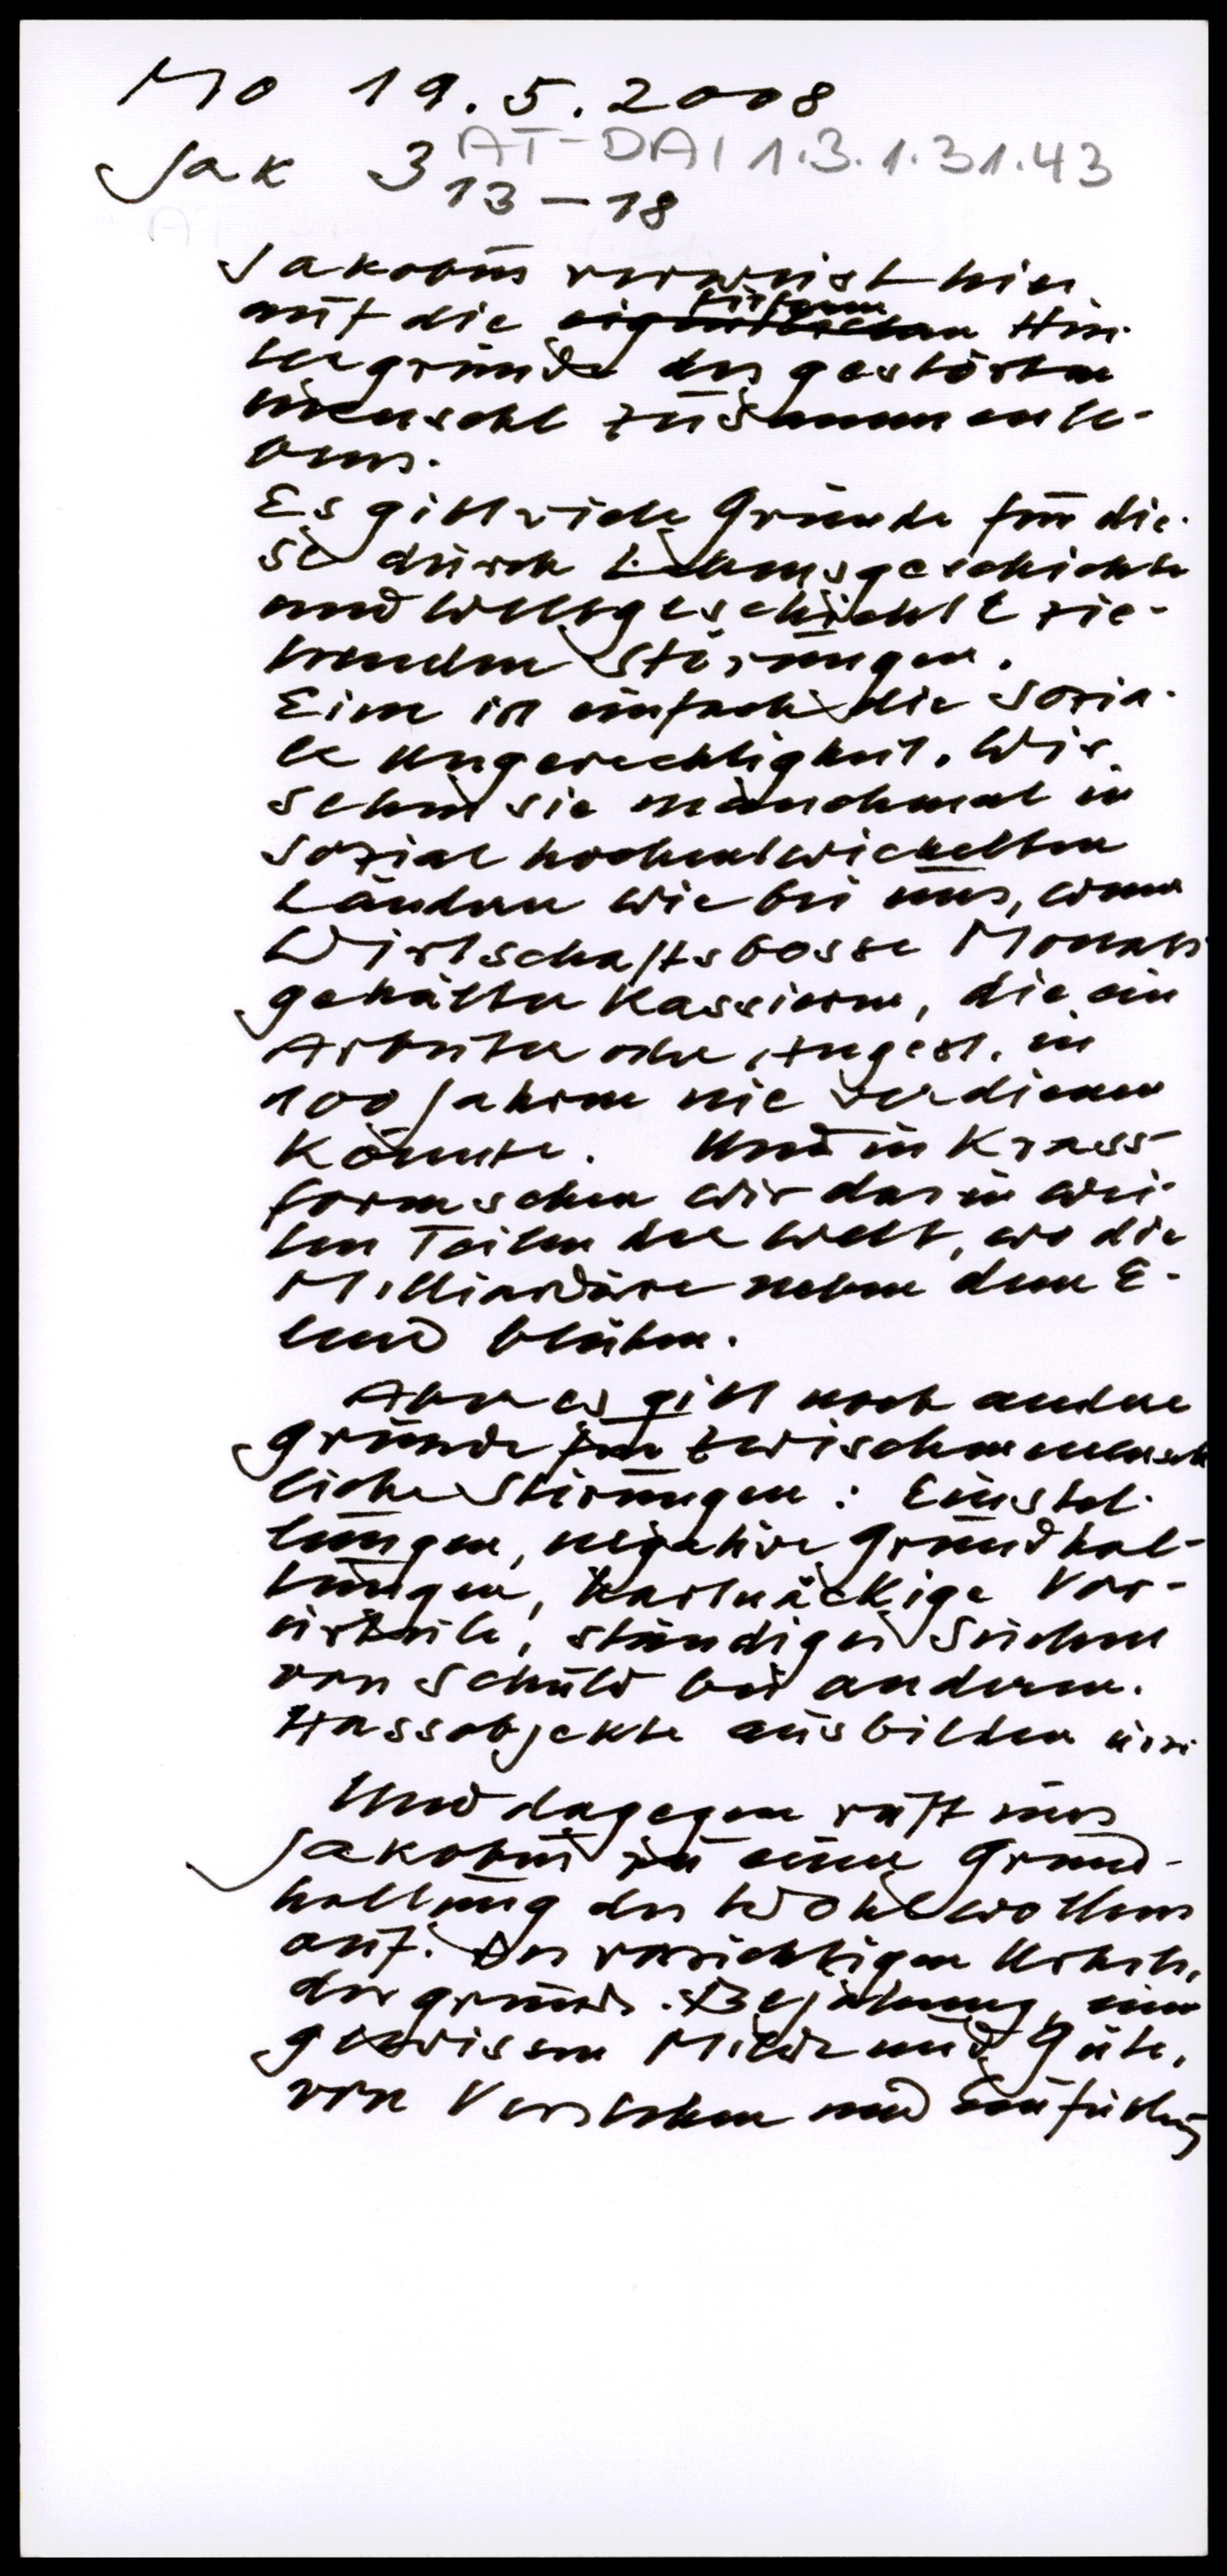 Mo 19.5.2008
AT-DAI 1.3.1.31.43
Jak 3 13-18
Jakobus verweist hier
auf die tieferen Hin-
tergründe des gestörten
menschl Zusammenle-
bens.
Es gibt viele Gründe für die-
se durch Lebensgeschichte
und Weltgeschichte zie-
henden Störungen.
Eine ist einfach die sozia-
le Ungerechtigkeit. Wir
sehen sie manchmal in
sozial hochentwickelten
Ländern wie bei uns, wenn
Wirtschaftsbosse Monats
gehälter kassieren, die ein
Arbeiter oder Angest. in
100 Jahren nie verdienen
könnte. Und in Krass
form sehen wir das in wei-
ten Teilen der Welt, wo die
Milliardäre neben dem E-
lend blühen.
Aber es gibt noch andere
Gründe für zwischenmensch
liche Störungen: Einstel-
lungen, negative Grundhal-
tungen, hartnäckige Vor-
urteile, ständiges Suchen
von Schuld bei anderen.
Hassobjekte ausbilden
Und dagegen ruft uns
Jakobus zu einer Grund-
haltung des Wohlwollens
auf. Des vorsichtigen Urteils,
der grunds. Bejahung, einer
gewissen Milde und Güte,
von Verstehen und Einfühlung